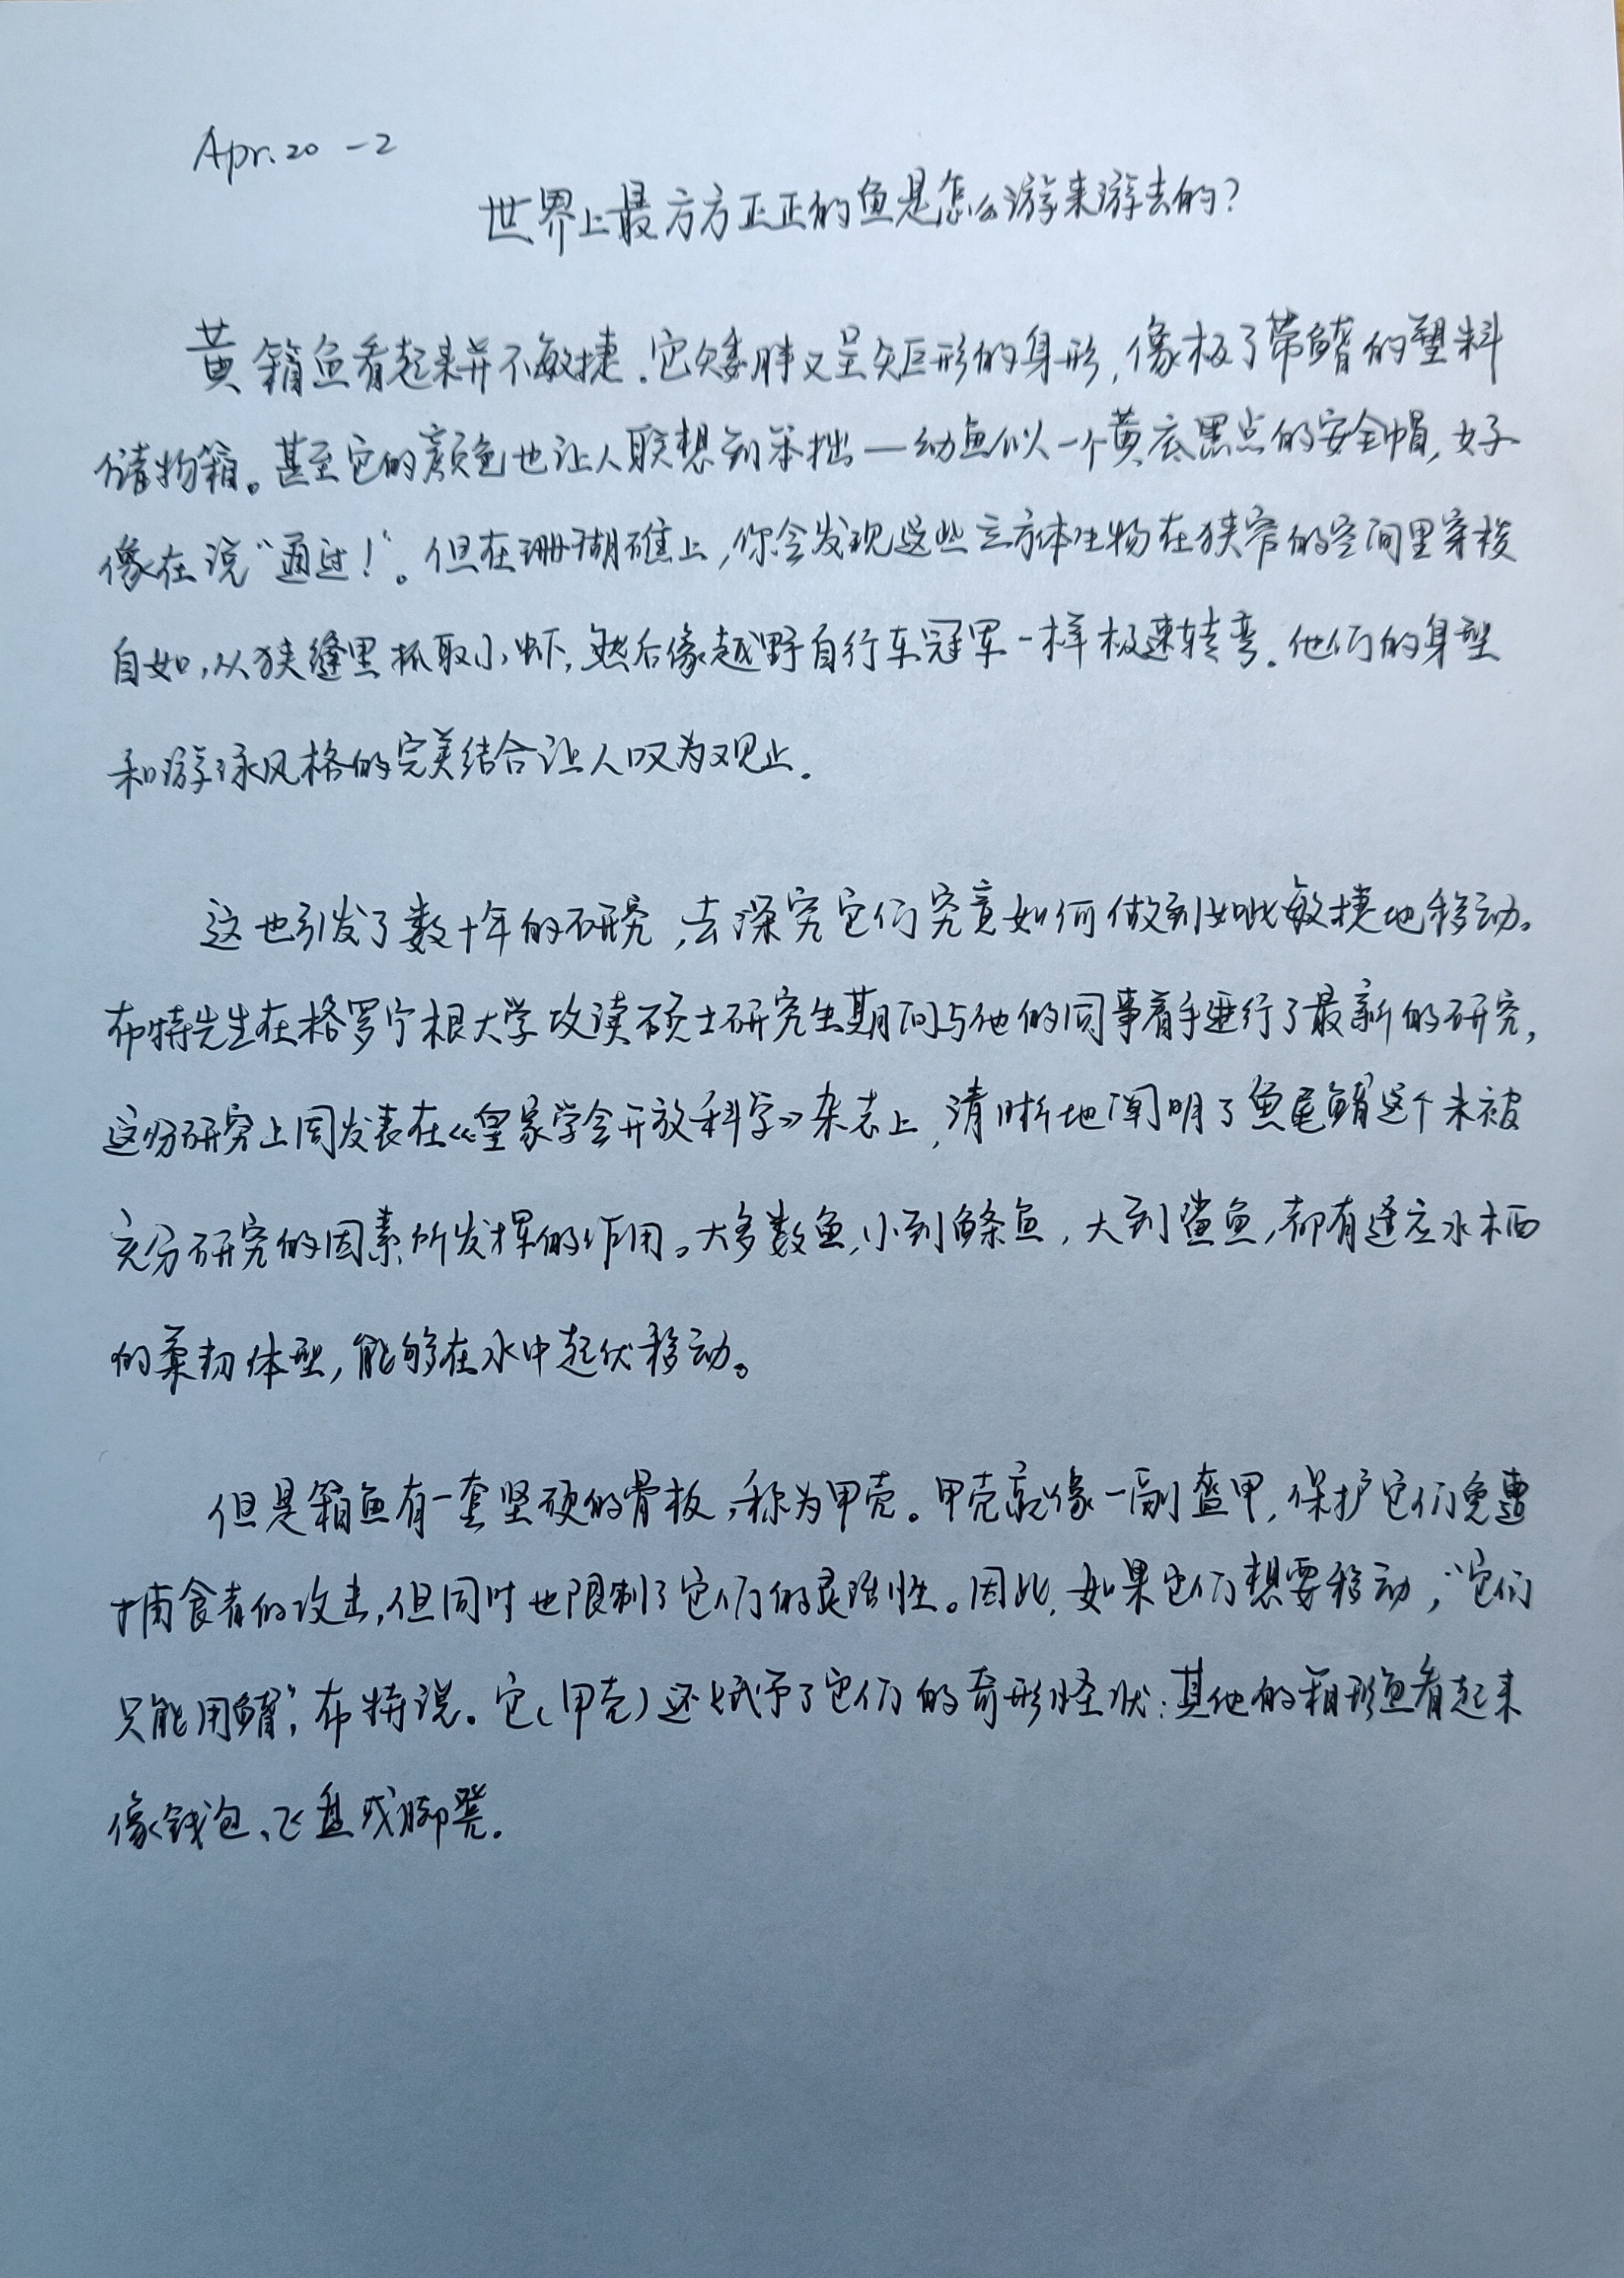 Apr.20 -2
世界上最方方正正的鱼是怎么游来游去的?
黄箱鱼看起来并不敏捷.它矮胖又呈矩形的身形,像极了带鳍的塑料
储物箱。甚至它的颜色也让人联想到笨拙—幼鱼似一个黄底黑点的安全帽,好
像在说“通过!”。但在珊瑚礁上,你会发现这些立方体生物在狭窄的空间里穿梭
自如,从狭缝里抓取小虾,然后像越野自行车冠军一样极速转弯.他们的身型
和游泳风格的完美结合让人叹为观止.
这也引发了数十年的研究,去深究它们究竟如何做到如此敏捷地移动。
布特先生在格罗宁根大学攻读硕士研究生期间与他的同事着手进行了最新的研究,
这份研究上周发表在《皇家学会开放科学》杂志上,清晰地阐明了鱼尾鳍这个未被
充分研究的因素所发挥的作用。大多数鱼,小到鲦鱼,大到鲨鱼,都有适应水栖
的柔韧体型,能够在水中起伏移动。
但是箱鱼有一套坚硬的骨板,称为甲壳。甲壳就像一副盔甲,保护它们免遭
捕食者的攻击,但同时也限制了它们的灵活性。因此,如果它们想要移动,“它们
只能用鳍”,布特说。它(甲壳)还赋予了它们的奇形怪状:其他的箱形鱼看起来
像钱包、飞盘或脚凳.